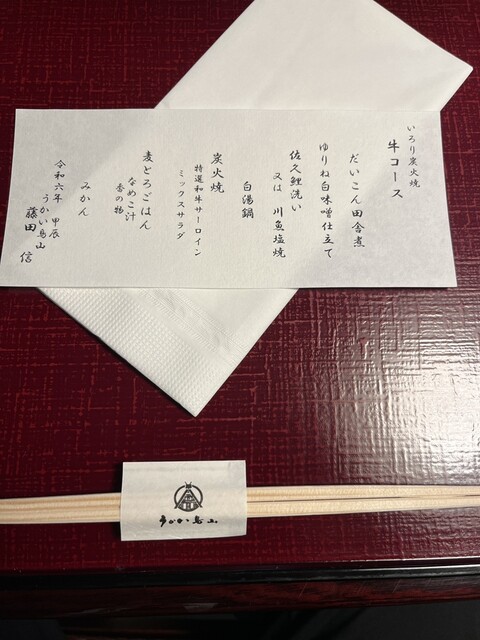 いろり炭火焼
牛コース
だいこん田舎煮
ゆりね白味噌仕立て
佐久鯉洗い
又は 川魚塩焼
白湯鍋
炭火焼
特選和牛サーロイン
ミックスサラダ
麦とろごはん
なめこ汁
香の物
みかん
令和六年 甲辰
うかい鳥山
藤田 信
うかい鳥山